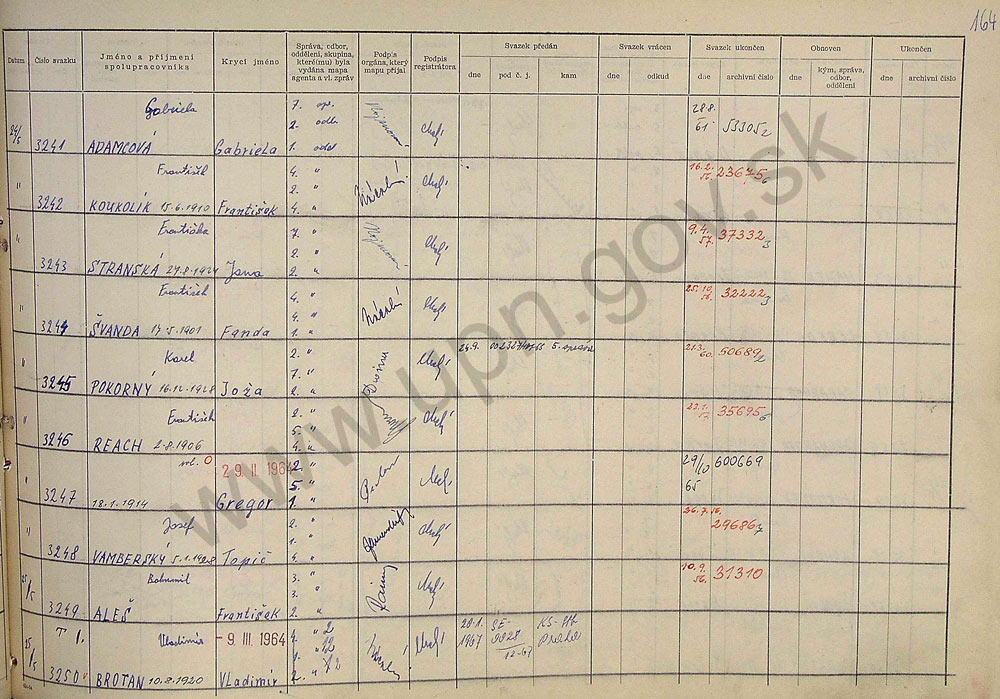 164
Datum
Číslo svazku
Jméno a příjmení
spolupracovníka
Krycí jméno
Správa, odbor,
oddělení, skupina,
které(mu) byla
vydána mapa
agenta a vl. zpráv
Podpis
orgána, který
mapu přijal
Podpis
registrátora
Svazek předán
dne
pod č. j.
kam
Svazek vrácen
dne
odkud
Svazek ukončen
dne
archivní číslo
Obnoven
dne
kým, správa,
odbor,
oddělení
Ukončen
dne
archivní číslo
24/5 3241 Gabriela
ADAMCOVÁ Gabriela
7. spr.
2. odb.
1. odd
28.8.
61 53305 2
" 3242 František
KOUKOLÍK 15.6.1910 František
4. "
2. "
4. "
16.2.
56. 23675 6
" 3243 Františka
STRANSKÁ 27.8.1924 Jana
7. "
2. "
2. "
9.4.
57. 37332 3
" 3244 František
ŠVANDA 17.5.1901 Fanda
4. "
4. "
1. "
25.10.
56. 32222 3
" 3245 Karel
POKORNÝ 16.12.1928 Joža
2. "
7. "
2. "
24.9. 5. správa
60. 50689 2
" 3246 František
REACH 2.8.1906
2. "
5. "
4. "
35695 6
" 3247
18.1.1914 Gregor
29 II 1964
2. "
5. "
1. "
29/10 600669
65
" 3248 Josef
VAMBERSKÝ 5.1.1928 Topič
2. "
1. "
4. "
26.7.56.
29686 7
25/5 3249 Bohumil
ALEŠ František
3. "
3. "
2. "
10.9.
56. 31310
25/5 3250 Vladimír
BROTAN 10.8.1920 Vladimír
-9. III 1964
20.1.
1967
SE-
0028
12-67
KS-
Praha
www.upn.gov.sk